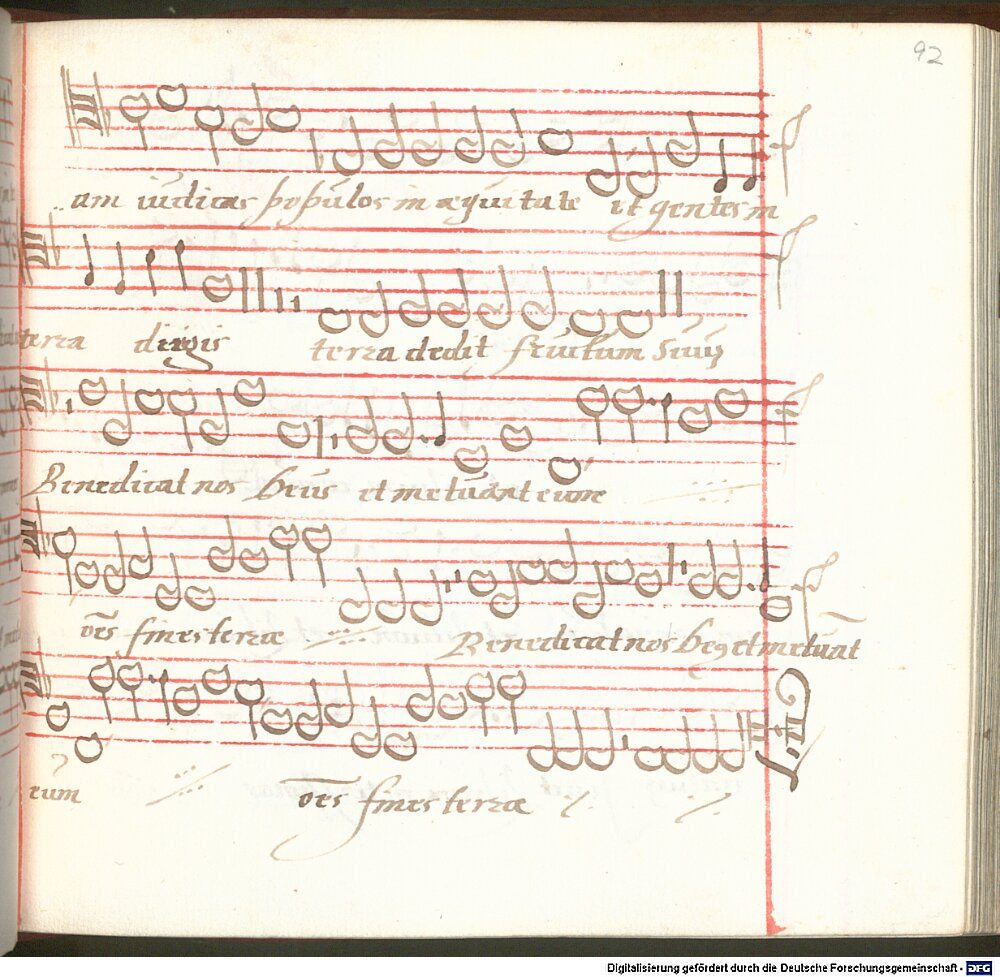 92
am iudicas populos in æquitate et gentes in
terra dirigis terra dedit fructum Suuȝ
Benedicat nos Deus et metuant eum
oẽs fines terræ Benedicat nos De9 et metuãt
eum oẽs fines terræ
Digitalisierung gefördert durch die Deutsche Forschungsgemeinschaft - DFG